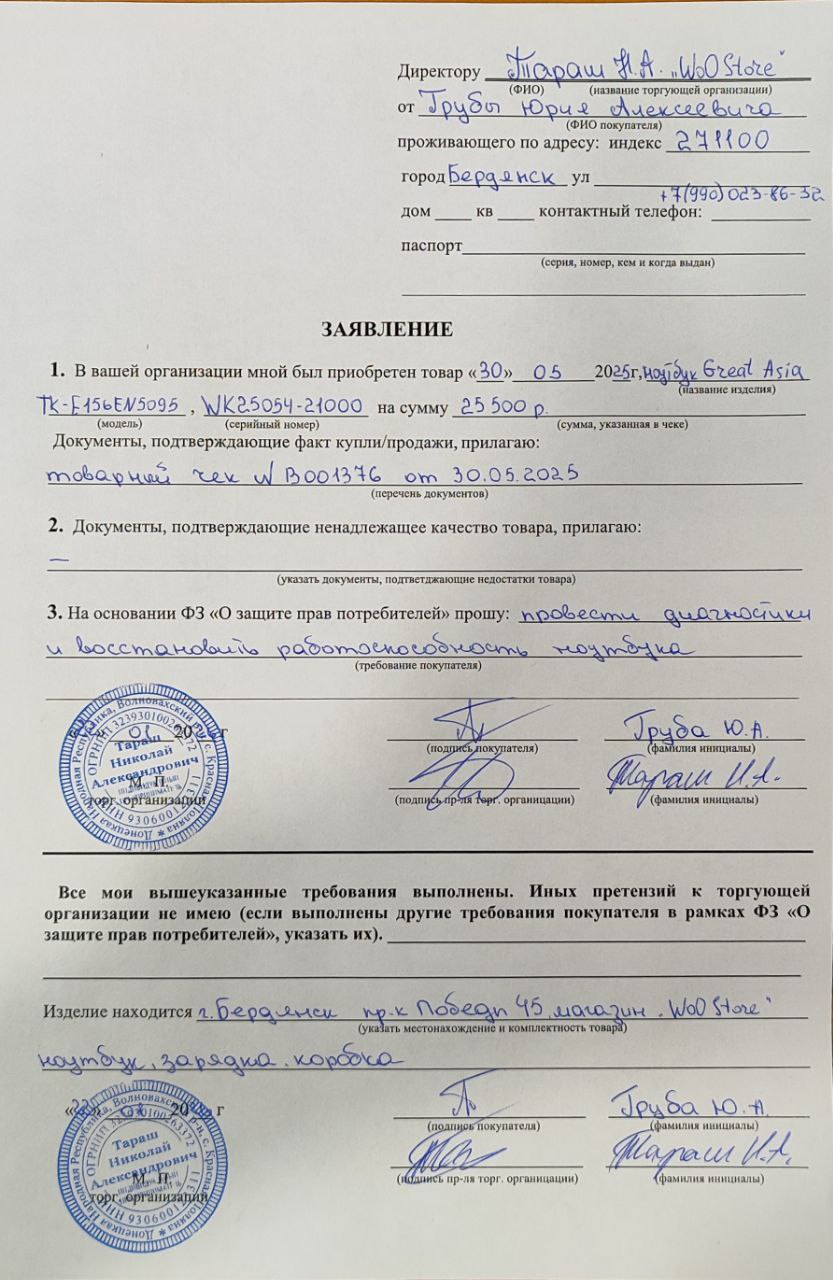 Директору Тараш Н.А. "WoO Store"
(ФИО) (название торгующей организации)
от Грубы Юрия Алексеевича
(ФИО покупателя)
проживающего по адресу: индекс 271100
город Бердянск ул
+7(990)023-86-32
дом кв контактный телефон:
паспорт
(серия, номер, кем и когда выдан)
ЗАЯВЛЕНИЕ
1. В вашей организации мной был приобретен товар «30» 05 2025г, ноутбук Great Asia
(название изделия)
TK-E156EN5095 , WK25054-21000 на сумму 25 500 р.
(модель) (серийный номер) (сумма, указанная в чеке)
Документы, подтверждающие факт купли/продажи, прилагаю:
товарный чек N B001376 от 30.05.2025
(перечень документов)
2. Документы, подтверждающие ненадлежащее качество товара, прилагаю:
—
(указать документы, подтветджающие недостатки товара)
3. На основании ФЗ «О защите прав потребителей» прошу: провести диагностику
и восстановить работоспособность ноутбука
(требование покупателя)
01 20 г Груба Ю.А.
(подпись покупателя) (фамилия инициалы)
Тараш Н.А.
М П
торг. организации (подпись пр-ля торг. органицации) (фамилия инициалы)
Донецкая Народная Республика, Волновахский р-н, с. Красная Поляна
Тараш
Николай
Александрович
Все мои вышеуказанные требования выполнены. Иных претензий к торгующей
организации не имею (если выполнены другие требования покупателя в рамках ФЗ «О
защите прав потребителей», указать их).
Изделие находится г. Бердянск пр-к Победы 45, магазин "WoO Store"
(указать местонахождение и комплектность товара)
ноутбук, зарядка, коробка
«22» 01 20 г Груба Ю.А.
(подпись покупателя) (фамилия инициалы)
Тараш Н.А.
М П
торг. организации (подпись пр-ля торг. органицации) (фамилия инициалы)
Донецкая Народная Республика, Волновахский р-н, с. Красная Поляна
Тараш
Николай
Александрович